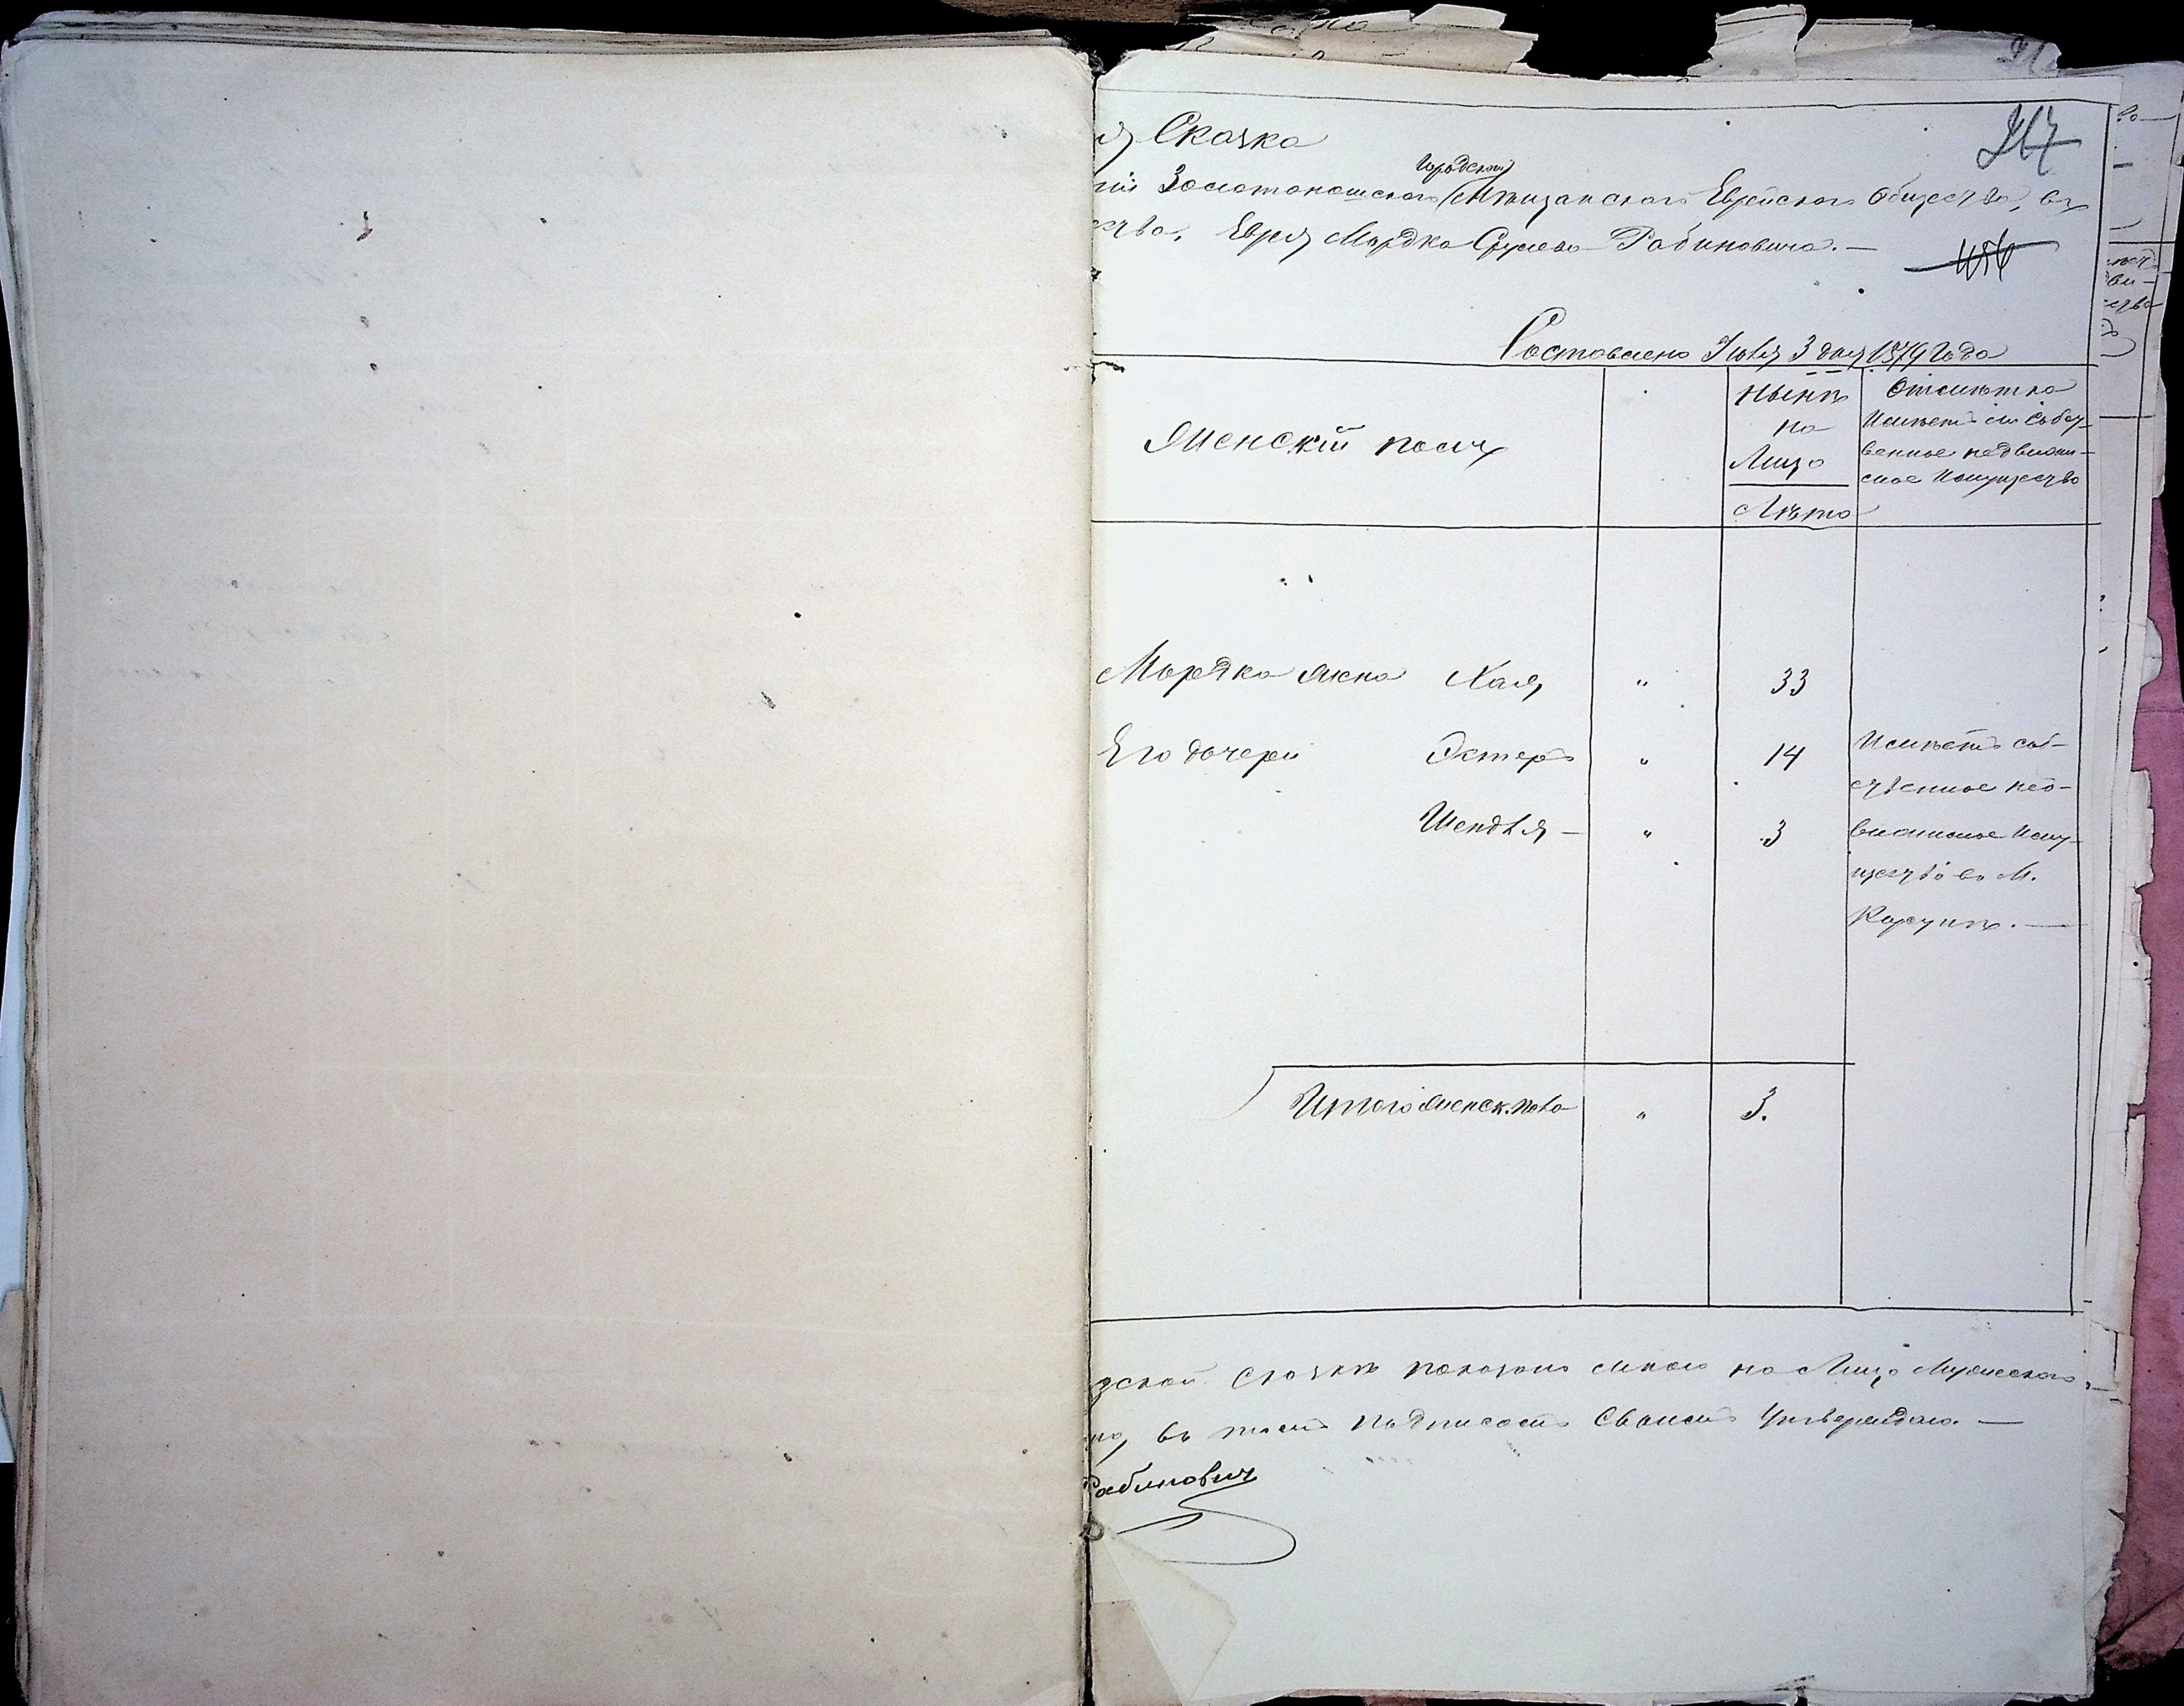 я Сказка
Городской
Золотоношского Мѣщанского Еврейского Общества, въ
ства, Еврея Мордка Срулева Рабиновича. —
Составлено Іюля 3 дня 1879 Года
Женскій полъ
Нынѣ
на
Лицо
Лѣта
Отмѣтка
Имѣетъ ли Собст-
венное недвижи-
мое Имущество
Мордка жена Хая " 33
Его дочери Эстеръ " 14
Шендля — " 3
Имѣетъ соб-
ственное нед-
вижимое Иму-
щество въ М.
Корсунѣ. —
Итого женск. пола " 3.
Сказкѣ показано мною на Лицо Мужеского
въ томъ Подписомъ Своимъ Утверждаю. —
Рабинович